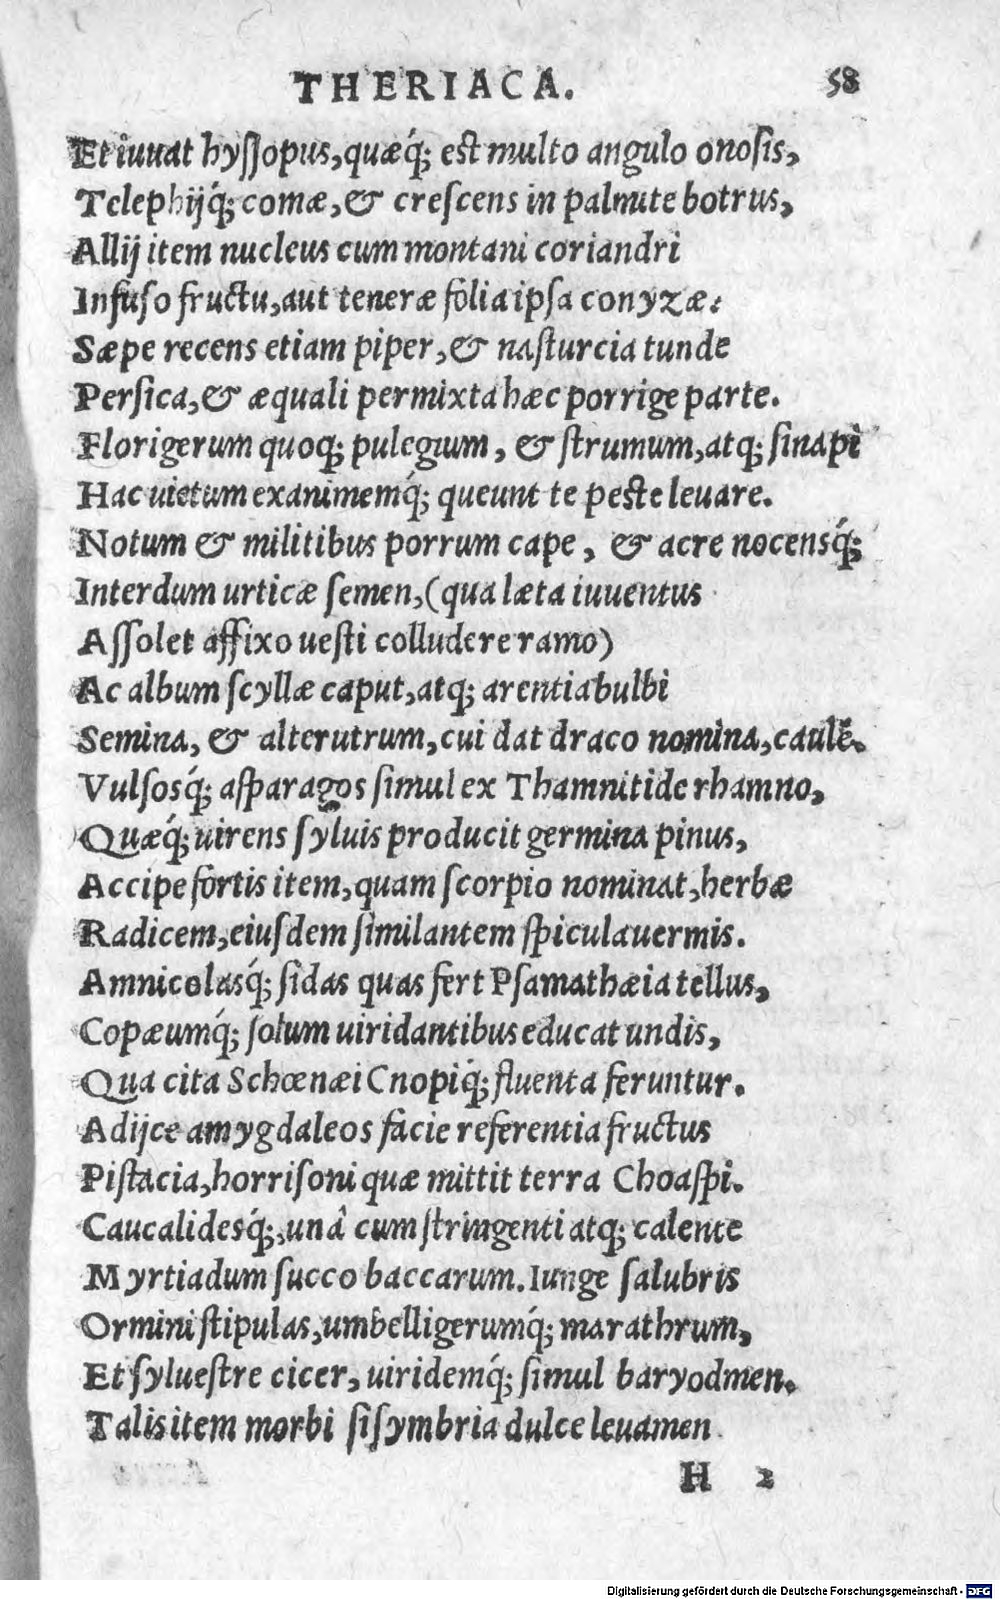 THERIACA. 58
Et iuuat hyſſopus, quæq́; est multo angulo onoſis,
Telephijq́; comæ, & creſcens in palmite botrus,
Allij item nucleus cum montani coriandri
Infuſo fructu, aut teneræ folia ipſa conyzæ:
Sæpe recens etiam piper, & naſturcia tunde
Perſica, & æquali permixta hæc porrige parte.
Florigerum quoq; pulegium, & ſtrumum, atq; ſinapi
Hac uictum exanimemq́; queunt te peste leuare.
Notum & militibus porrum cape, & acre nocensq́;
Interdum urticæ ſemen, (qua læta iuuentus
Aſſolet affixo ueſti colludere ramo)
Ac album ſcyllæ caput, atq; arentia bulbi
Semina, & alterutrum, cui dat draco nomina, caulē.
Vulſosq́; aſparagos ſimul ex Thamnitide rhamno,
Quæq́; uirens ſyluis producit germina pinus,
Accipe fortis item, quam ſcorpio nominat, herbæ
Radicem, eiuſdem ſimilantem ſpicula uermis.
Amnicolasq́; ſidas quas fert Pſamathæia tellus,
Copæumq́; ſolum uiridantibus educat undis,
Qua cita Schœnæi Cnopiq́; fluenta feruntur.
Adijce amygdaleos facie referentia fructus
Piſtacia, horriſoni quæ mittit terra Choaſpi.
Caucalidesq́;, unâ cum ſtringenti atq; calente
Myrtiadum ſucco baccarum. Iunge ſalubris
Ormini ſtipulas, umbelligerumq́; marathrum,
Et ſylueſtre cicer, uiridemq́; ſimul baryodmen.
Talis item morbi ſiſymbria dulce leuamen
H 2
Digitalisierung gefördert durch die Deutsche Forschungsgemeinschaft - DFG